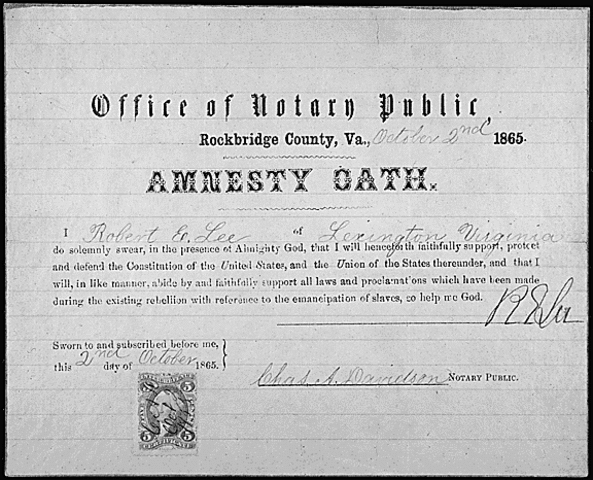 Office of Notary Public
Rockbridge County, Va., October 2nd 1865.
AMNESTY OATH.
I Robert E. Lee of Lexington Virginia
do solemnly swear, in the presence of Almighty God, that I will henceforth faithfully support, protect
and defend the Constitution of the United States, and the Union of the States thereunder, and that I
will, in like manner, abide by and faithfully support all laws and proclamations which have been made
during the existing rebellion with reference to the emancipation of slaves, so help me God.
R E Lee
Sworn to and subscribed before me,
this 2nd day of October 1865.
Chas. A. Davidson NOTARY PUBLIC.
5 5
5 5
CERTIFICATE